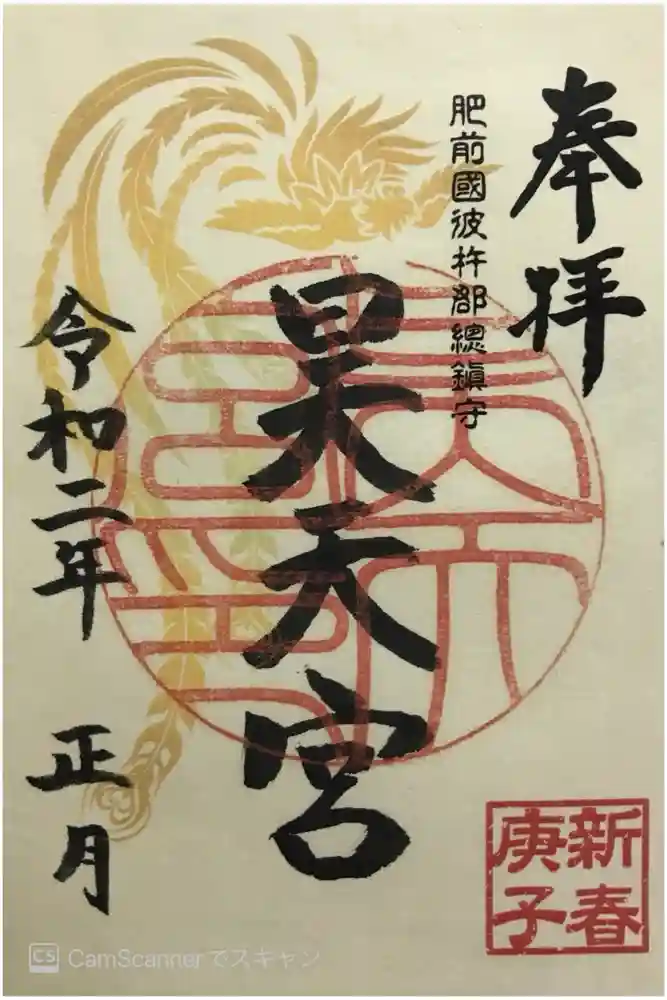 奉拝
肥前國彼杵郡總鎮守
昊天宮
令和二年 正月
新春
庚子
CS CamScannerでスキャン